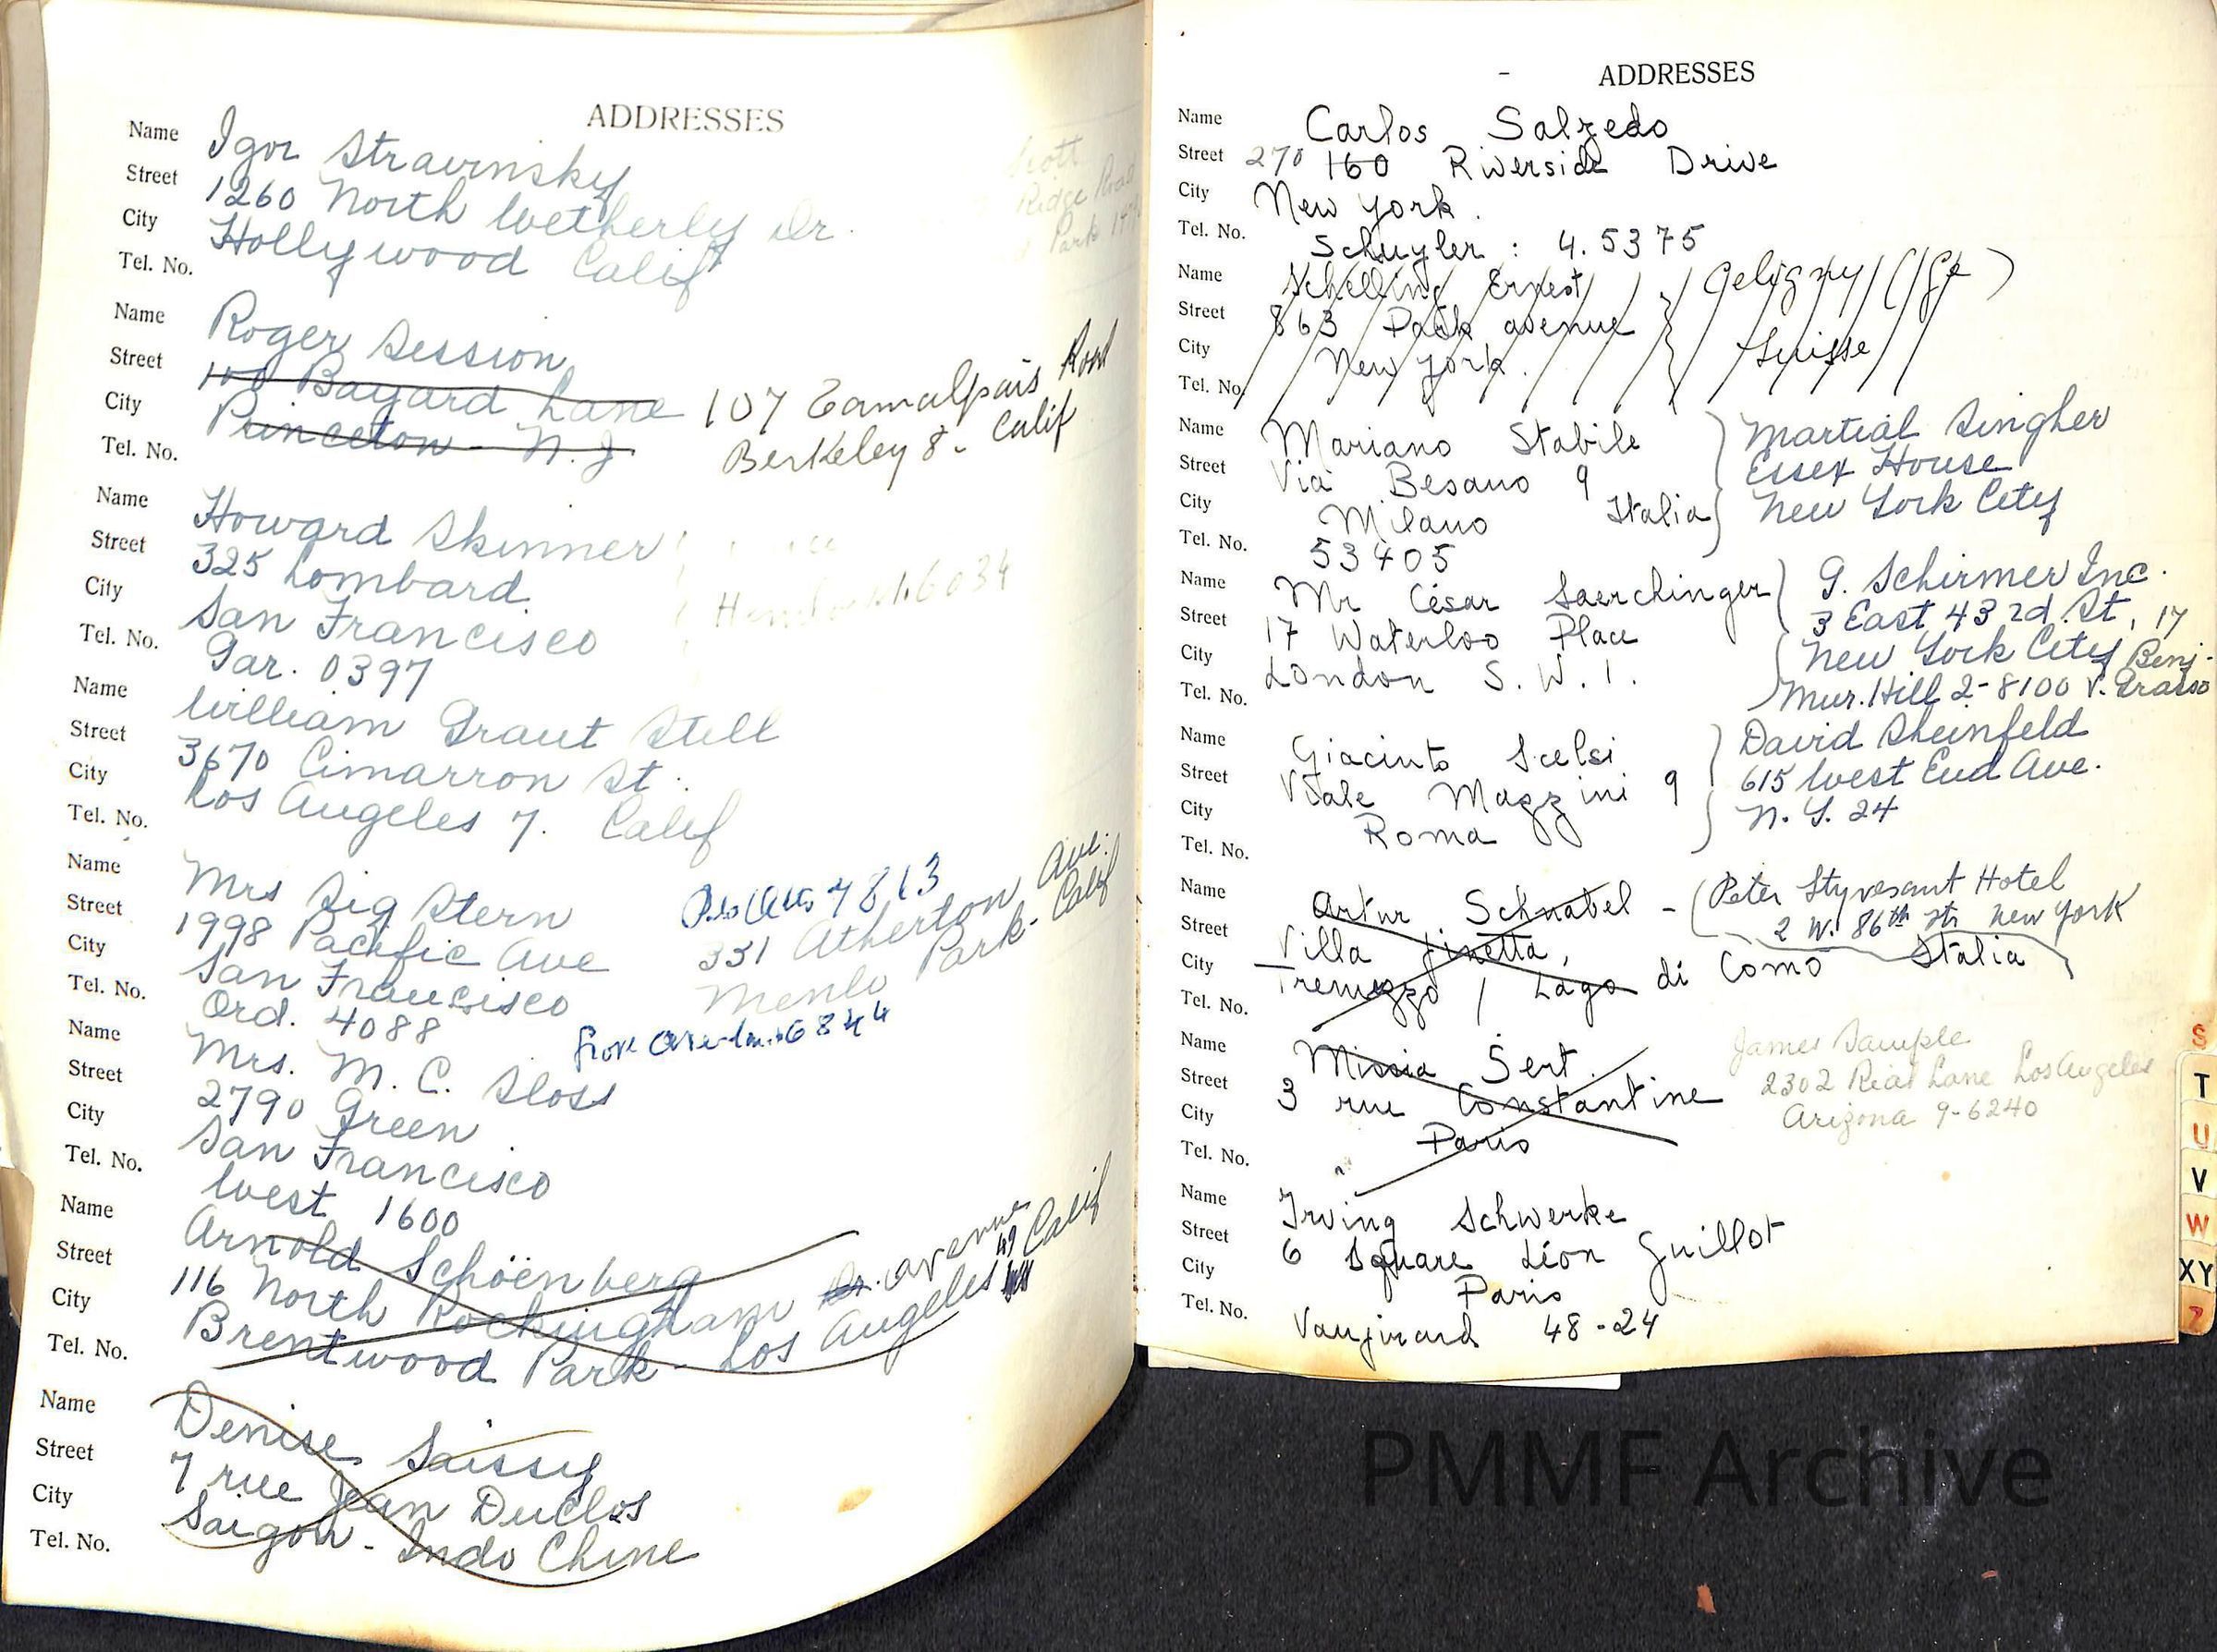 ADDRESSES
Name Igor Stravinsky
Street 1260 North Wetherly Dr.
City Hollywood Calif
Tel. No.
Name Roger Session
Street 100 Bayard Lane 107 Tamalpais Road
City Princeton - N.J Berkeley 8 - Calif
Tel. No.
Name Howard Skinner
Street 325 Lombard.
City San Francisco
Tel. No. Gar. 0397
6034
Name William Grant Still
Street 3670 Cimarron St.
City Los Angeles 7. Calif
Tel. No.
Name Mrs Sig Stern
Street 1998 Pacific Ave
City San Francisco
Tel. No. Ord. 4088
Palo Alto 4813
331 Atherton Ave.
Menlo Park - Calif
6844
Name Mrs. M. C. Sloss
Street 2790 Green
City San Francisco
Tel. No. West 1600
Name Arnold Schöenberg
Street 116 North Rockingham Dr. avenue
City Brentwood Park - Los Angeles 49 Calif
Tel. No.
Name Denise Saissy
Street 7 rue Jean Duclos
City Saigon - Indo Chine
Tel. No.
Scott
Ridge Road
Park
ADDRESSES
Name Carlos Salzedo
Street 270 160 Riverside Drive
City New York.
Tel. No. Schuyler : 4.5375
Name Schelling Ernest
Street 863 Park avenue
City New York.
Tel. No.
Céligny
Suisse
Name Mariano Stabile
Street Via Besano 9
City Milano Italia
Tel. No. 53405
Martial Singher
Essex House
New York City
Name Mr César Saerchinger
Street 17 Waterloo Place
City London S.W.1.
Tel. No.
G. Schirmer Inc.
3 East 43rd. St, 17
New York City Benj.
Mur. Hill 2-8100 V. Grasso
Name Giacinto Scelsi
Street Viale Mazzini 9
City Roma
Tel. No.
David Sheinfeld
615 West End Ave.
N.Y. 24
Name Artur Schnabel - Peter Styvesant Hotel
2 W. 86th str New York
Street Villa Ginetta,
City Tremezzo / Lago di Como Italia
Tel. No.
Name Missia Sert.
Street 3 rue Constantine
City Paris
Tel. No.
James Sample
2302 Lane Los Angeles
Arizona 9-6240
Name Irving Schwerke
Street 6 Square Léon Guillot
City Paris
Tel. No. Vaugirard 48-24
S
T
U
V
W
XY
Z
PMMF Archive